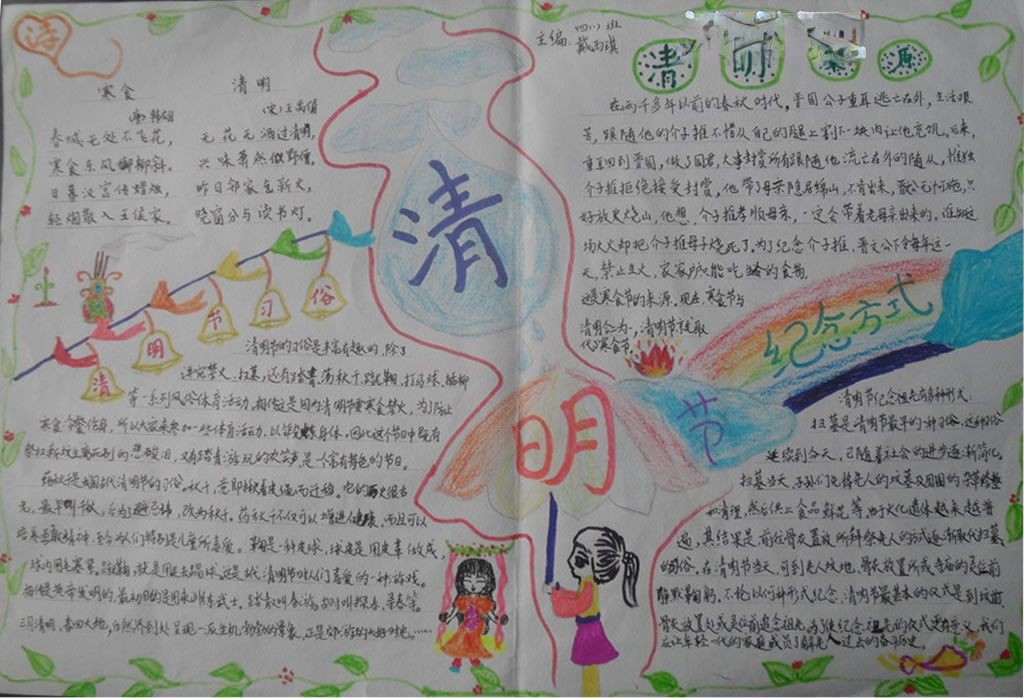 游
寒食
(唐)韩翃
春城无处不飞花,
寒食东风御柳斜。
日暮汉宫传蜡烛,
轻烟散入五侯家。
清明
(宋)王禹偁
无花无酒过清明,
兴味萧然似野僧。
昨日邻家乞新火,
晓窗分与读书灯。
清明节习俗
清明节的习俗是丰富有趣的,除了
讲究禁火、扫墓,还有踏青、荡秋千、蹴鞠、打马球、插柳
等一系列风俗体育活动。相传这是因为清明节要寒食禁火,为了防止
寒食冷餐伤身,所以大家来参加一些体育活动,以锻炼身体。因此这个节日中既有
祭扫新坟生离死别的悲酸泪,又有踏青游玩的欢笑声,是一个富有特色的节日。
荡秋千是我国古代清明节的习俗。秋千,意即揪着皮绳而迁移。它的历史很古
老,最早叫千秋,后为了避忌讳,改为秋千。荡秋千不仅可以增进健康,而且可以
培养勇敢精神,至今为人们特别是儿童所喜爱。鞠是一种皮球,球皮是用皮革做成,
球内用毛塞紧。蹴鞠,就是用足去踢球。这是古代清明节时人们喜爱的一种游戏。
相传是黄帝发明的,最初目的是用来训练武士。踏青又叫春游,古时叫探春、寻春等。
三月清明,春回大地,自然界到处呈现一派生机勃勃的景象,正是郊游的大好时光。……
清
明
节
主编:四(1)班
戴雨琪
清明来源
在两千多年以前的春秋时代,晋国公子重耳逃亡在外,生活艰
苦,跟随他的介子推不惜从自己的腿上割下一块肉让他充饥。后来,
重耳回到晋国,做了国君,大事封赏所有跟随他流亡在外的随从,惟独
介子推拒绝接受封赏,他带了母亲隐居绵山,不肯出来,晋文公无计可施,只
好放火烧山,他想,介子推孝顺母亲,一定会带着老母亲出来的。谁知这
场大火却把介子推母子烧死了。为了纪念介子推,晋文公下令每年这一
天,禁止生火,家家户户只能吃冷的食物,
这是寒食节的来源。现在,寒食节与
清明合为一,清明节就取
代了寒食节。
纪念方式
清明节纪念祖先有多种形式:
扫墓是清明节最早的一种习俗,这种习俗
延续到今天,已随着社会的进步逐渐简化。
扫墓当天,子孙们先将先人的坟墓及周围的杂草修整
和清理,然后供上食品鲜花等。由于火化遗体越来越普
遍,其结果是前往骨灰置放
的习俗。在清明节当天,可到先人坟地、骨灰放置所或寺庙的灵位前
静默鞠躬。不论以何种形式纪念,清明节最基本的仪式是到坟前、
骨灰放置处或灵位前追念祖先。为了使纪念祖先的仪式更有意义,我们
应让年轻一代的家庭成员了解先人过去的奋斗历史。